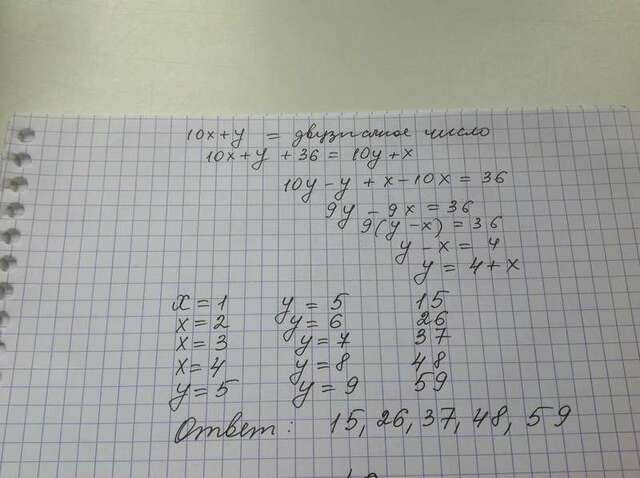 10x+y = двузначное число
10x+y+36 = 10y+x
10y-y+x-10x = 36
9y-9x = 36
9(y-x) = 36
y-x = 4
y = 4+x
x=1 y=5 15
x=2 y=6 26
x=3 y=7 37
x=4 y=8 48
y=5 y=9 59
Ответ: 15, 26, 37, 48, 59